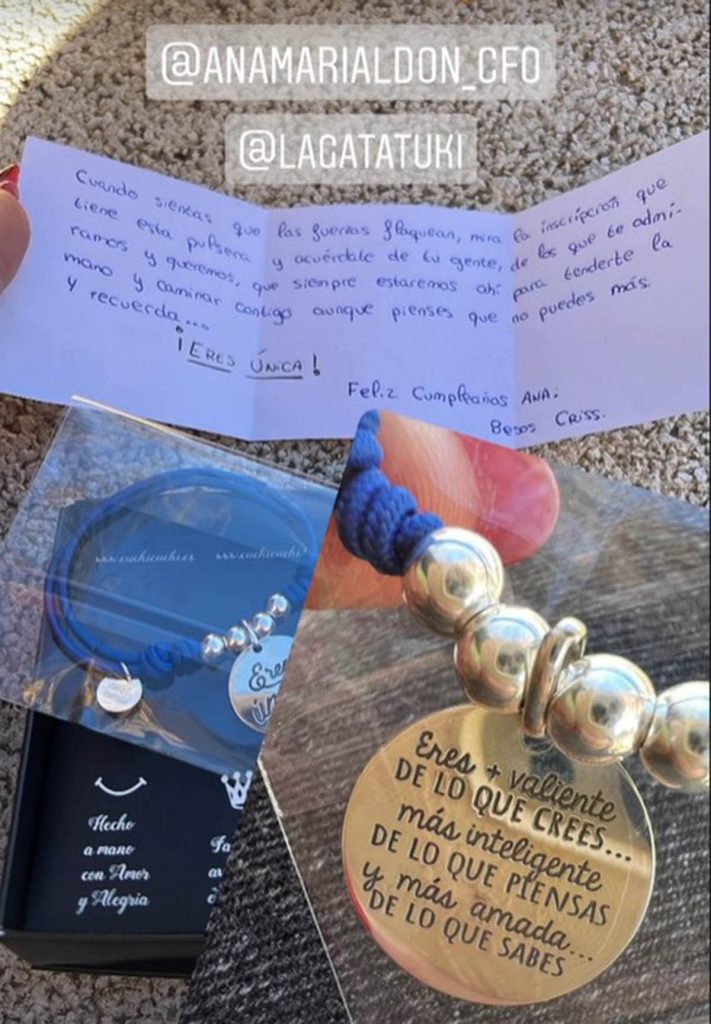 @ANAMARIALDON_CFO
@LAGATATUKI
Cuando sientas que las fuerzas flaquean, mira la inscripción que
tiene esta pulsera y acuérdate de tu gente, de los que te admi-
ramos y queremos, que siempre estaremos ahí para tenderte la
mano y caminar contigo aunque pienses que no puedes más.
Y recuerda...
¡ERES ÚNICA!
Feliz Cumpleaños ANA.
Besos Criss.
www.cuchicuchi.es www.cuchicuchi
Eres
ún
Hecho
a mano
con Amor
y Alegría
Eres + valiente
DE LO QUE CREES...
más inteligente
DE LO QUE PIENSAS
y más amada...
DE LO QUE SABES